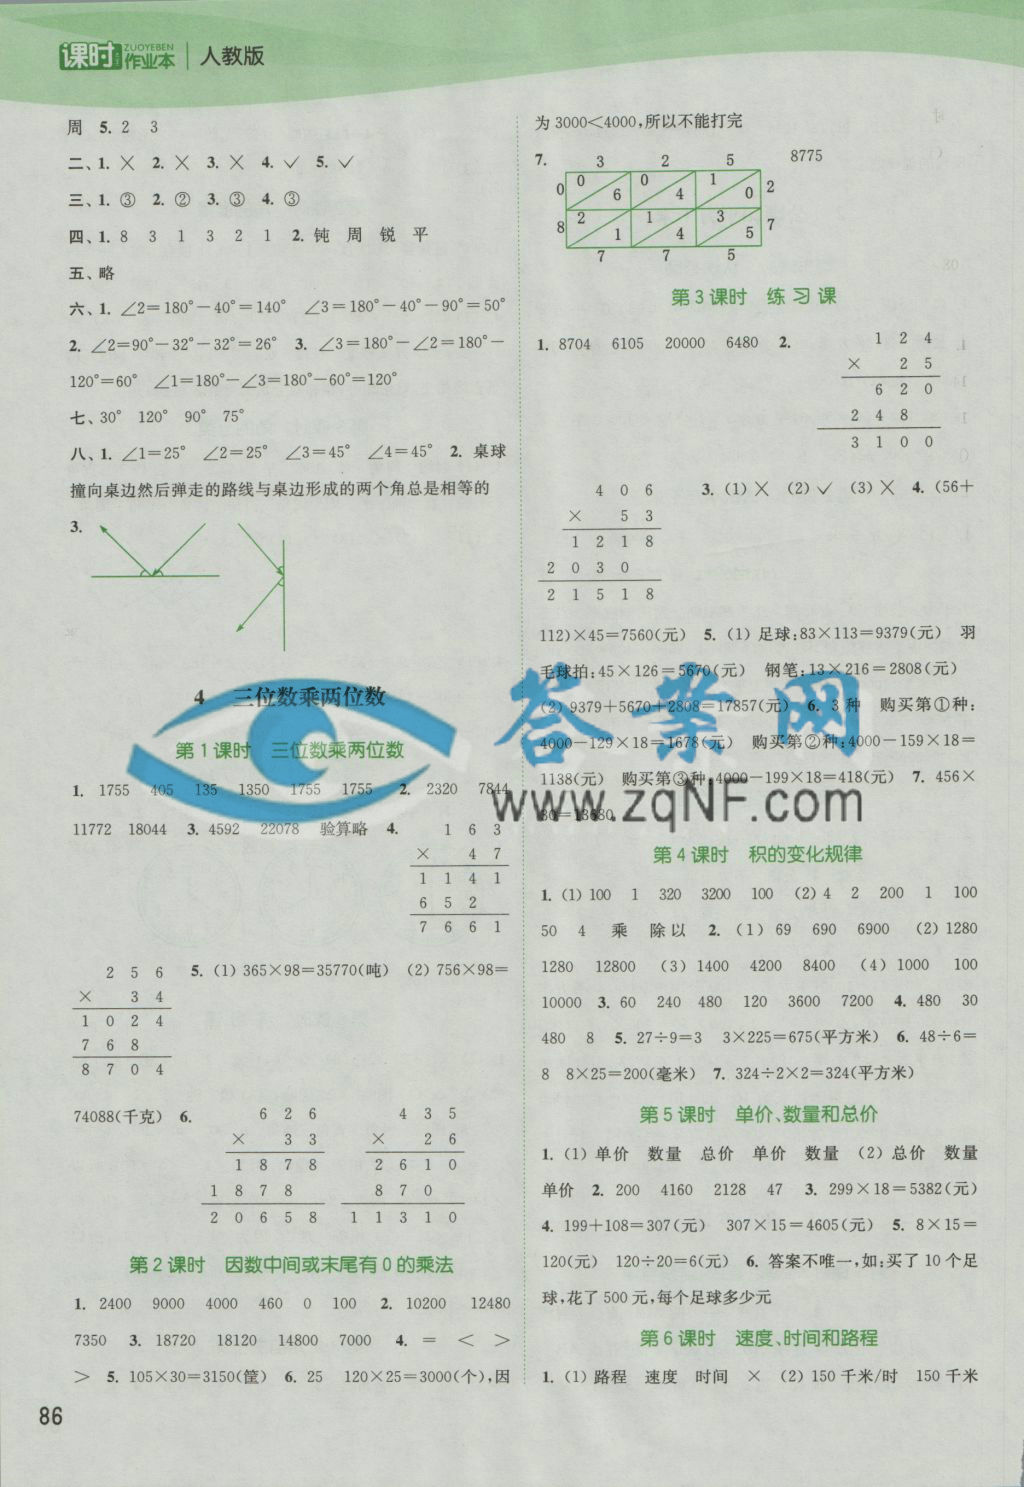 课时 ZUOYEBEN 作业本 人教版
周 5. 2 3
二、1. × 2. × 3. × 4. ✓ 5. ✓
三、1. ③ 2. ② 3. ③ 4. ③
四、1. 8 3 1 3 2 1 2. 钝 周 锐 平
五、略
六、1. ∠2=180°-40°=140° ∠3=180°-40°-90°=50°
2. ∠2=90°-32°-32°=26° 3. ∠3=180°-∠2=180°-
120°=60° ∠1=180°-∠3=180°-60°=120°
七、30° 120° 90° 75°
八、1. ∠1=25° ∠2=25° ∠3=45° ∠4=45° 2. 桌球
撞向桌边然后弹走的路线与桌边形成的两个角总是相等的
3.
4 三位数乘两位数
第1课时 三位数乘两位数
1. 1755 405 135 1350 1755 1755 2. 2320 7844
11772 18044 3. 4592 22078 验算略 4. 1 6 3
× 4 7
1 1 4 1
6 5 2
7 6 6 1
2 5 6 5. (1) 365×98=35770(吨) (2) 756×98=
× 3 4
1 0 2 4
7 6 8
8 7 0 4
74088(千克) 6. 6 2 6 4 3 5
× 3 3 × 2 6
1 8 7 8 2 6 1 0
1 8 7 8 8 7 0
2 0 6 5 8 1 1 3 1 0
第2课时 因数中间或末尾有0的乘法
1. 2400 9000 4000 460 0 100 2. 10200 12480
7350 3. 18720 18120 14800 7000 4. = < >
> 5. 105×30=3150(筐) 6. 25 120×25=3000(个),因
86
为3000<4000,所以不能打完
7. 3 2 5 8775
0 0 6 0 4 1 0 2
8 2 1 1 4 3 5 7
7 7 5
第3课时 练习课
1. 8704 6105 20000 6480 2. 1 2 4
× 2 5
6 2 0
2 4 8
3 1 0 0
4 0 6 3. (1) × (2) ✓ (3) × 4. (56+
× 5 3
1 2 1 8
2 0 3 0
2 1 5 1 8
112)×45=7560(元) 5. (1) 足球:83×113=9379(元) 羽
毛球拍:45×126=5670(元) 钢笔:13×216=2808(元)
(2) 9379+5670+2808=17857(元) 6. 3种 购买第①种:
4000-129×18=1678(元) 购买第②种:4000-159×18=
1138(元) 购买第③种:4000-199×18=418(元) 7. 456×
30=13680
答案网
www.zqNF.com
第4课时 积的变化规律
1. (1) 100 1 320 3200 100 (2) 4 2 200 1 100
50 4 乘 除以 2. (1) 69 690 6900 (2) 1280
1280 12800 (3) 1400 4200 8400 (4) 1000 100
10000 3. 60 240 480 120 3600 7200 4. 480 30
480 8 5. 27÷9=3 3×225=675(平方米) 6. 48÷6=
8 8×25=200(毫米) 7. 324÷2×2=324(平方米)
第5课时 单价、数量和总价
1. (1) 单价 数量 总价 单价 数量 (2) 总价 数量
单价 2. 200 4160 2128 47 3. 299×18=5382(元)
4. 199+108=307(元) 307×15=4605(元) 5. 8×15=
120(元) 120÷20=6(元) 6. 答案不唯一,如:买了10个足
球,花了500元,每个足球多少元
第6课时 速度、时间和路程
1. (1) 路程 速度 时间 × (2) 150千米/时 150千米